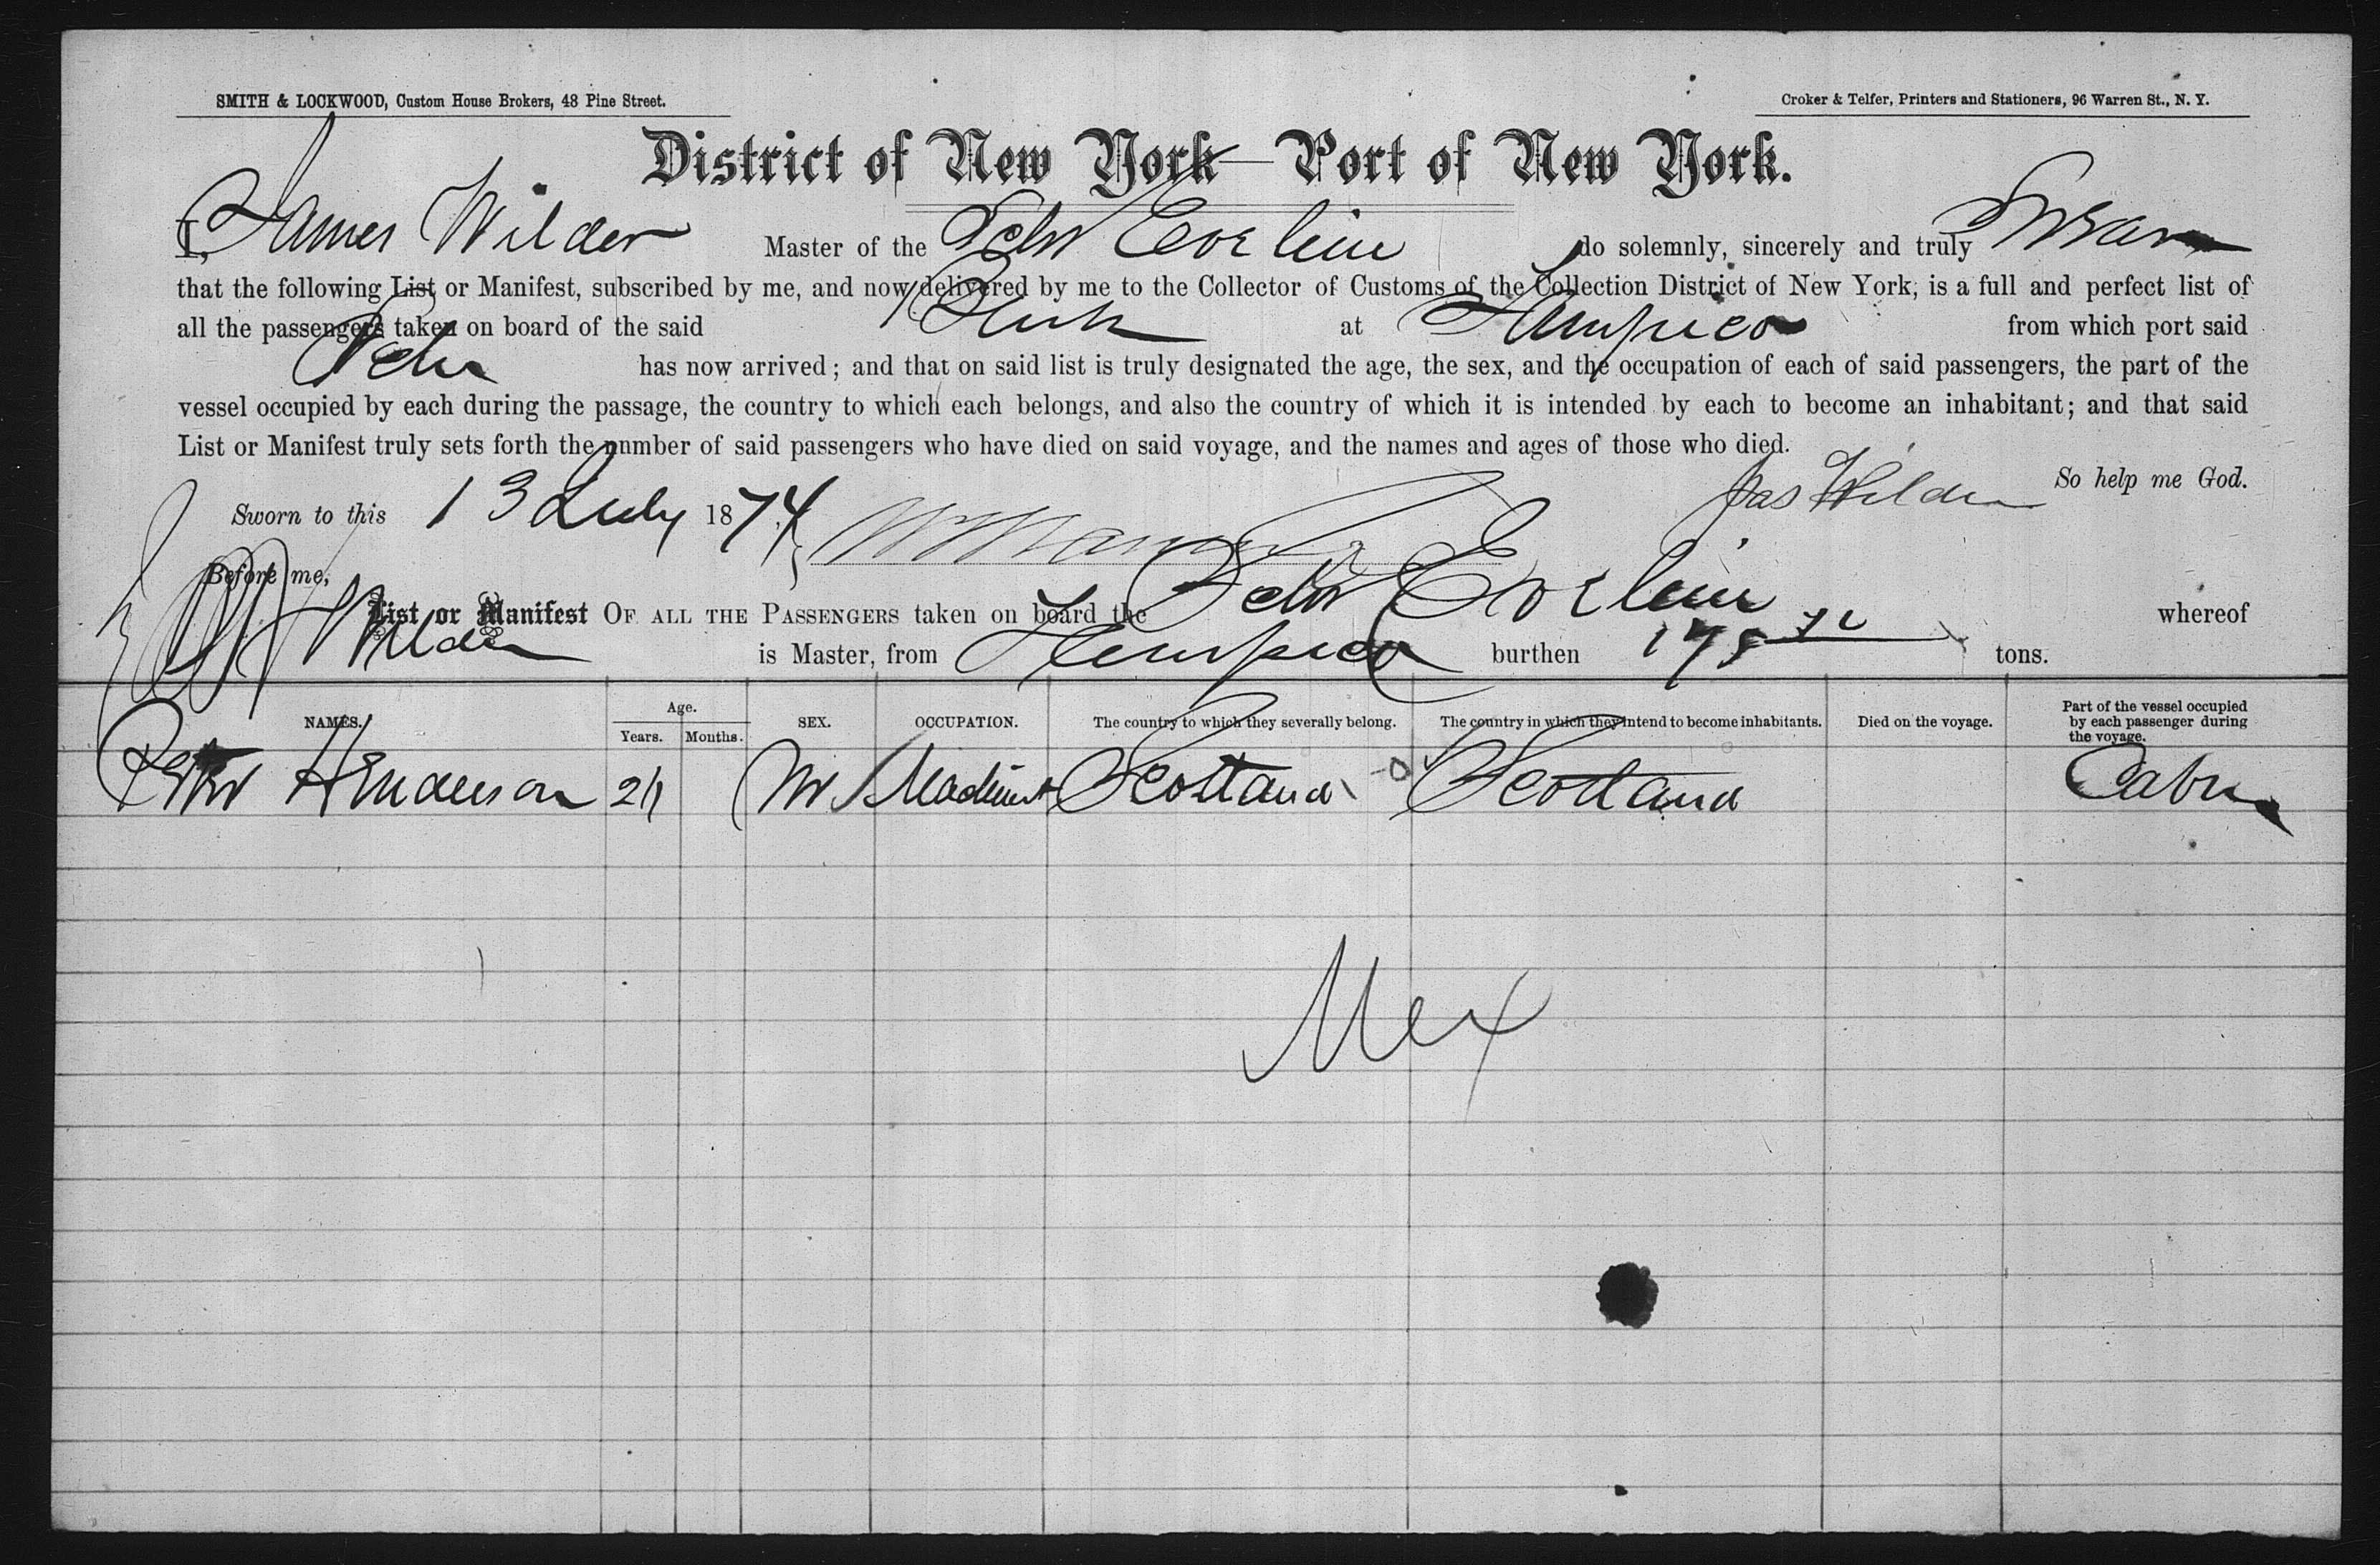 SMITH & LOCKWOOD, Custom House Brokers, 48 Pine Street.
Croker & Telfer, Printers and Stationers, 96 Warren St., N. Y.
District of New York—Port of New York.
I, James Wilder Master of the Schr Eveline do solemnly, sincerely and truly Swear
that the following List or Manifest, subscribed by me, and now delivered by me to the Collector of Customs of the Collection District of New York, is a full and perfect list of
all the passengers taken on board of the said Schr at Tampico from which port said
Schr has now arrived; and that on said list is truly designated the age, the sex, and the occupation of each of said passengers, the part of the
vessel occupied by each during the passage, the country to which each belongs, and also the country of which it is intended by each to become an inhabitant; and that said
List or Manifest truly sets forth the number of said passengers who have died on said voyage, and the names and ages of those who died.
So help me God.
Sworn to this 13 July 1874 Jas Wilder
Before me,
List or Manifest OF ALL THE PASSENGERS taken on board the Schr Eveline whereof
Wilder is Master, from Tampico burthen tons.
NAMES. Age. Years. Months. SEX. OCCUPATION. The country to which they severally belong. The country in which they intend to become inhabitants. Died on the voyage. Part of the vessel occupied by each passenger during the voyage.
Peter Henderson M Scotland Scotland Cabin
Mex